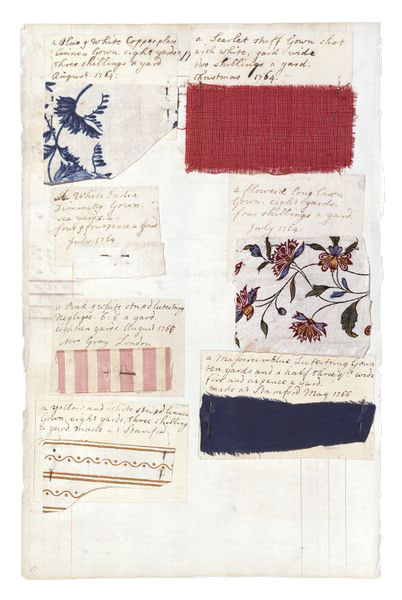 a Blue & White Copperplate
Linnen Gown. eight yards
three shillings a yard
August 1764.
a Scarlet stuff Gown shot
with white, yard wide
two shillings a yard.
Christmas 1764.
A White India
Dimmitty Gown
six yards
four & fourpence a yard
July 1764
a flower'd long lawn
Gown. eight yards.
four shillings a yard
July 1764
a Pink & white strip'd lutestring
Negligee 6:6 a yard
eighteen yards. August 1766
Mrs Gray London
a Mazereenblue Lutestring Gown
ten yards and a half three wide
five and sixpence a yard.
made at Stamford May 1766
a yellow and white strip'd Linnen
Gown, eight yards, three shillings
a yard made at Stamford